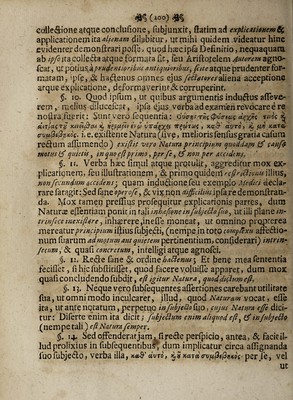 (200)
collectione atque conclusione, subjunxit, statim ad explicationem &
applicationem ita alienam dilabitur, ut mihi quidem videatur hinc
evidenter demonstrari posse, quod hæc ipsa Definitio, nequaquam
ab ipso ita collecta atque formata sit, seu Aristotelem Autorem agno-
scat, ut potius, à prudentioribus antiquioribus, scite atque prudenter for-
matam, ipse, & hactenus omnes ejus sectatores aliena acceptione
atque explicatione, deformaverint & corruperint.
§. 10. Quod ipsum, ut quibus argumentis inductus asseve-
rem, melius dilucescat, ipsa ejus verba ad examen revocare è re
nostra fuerit: Sunt vero sequentia: τῆς φύσεως ἀρχῆς τινὸς ἢ
αἰτίας καθ᾽ αὑτὸ, ἢ μὴ κατὰ
συμβεβηκός. i. e. existente Natura (sive, melioris sensus gratia casum
rectum assumendo) existit vero Natura principium quoddam & causa
motus & quietis, in quo est primo, per se, & non per accidens.
§. 11. Verba hæc simul atque protulit, aggreditur mox ex-
plicationem, seu illustrationem, & primo quidem est restrictius illius,
non secundum accidens; quam inductione seu exemplo Medici decla-
rare satagit: Sed sane operose, & vix non difficilius ipsa re demonstran-
da. Mox tamen pressius prosequitur explicationis partes, dum
Naturæ essentiam ponit in tali inhæsione in subjecto suo, ut illi plane in-
trinsece inexistere, inhærere, inesse moneat, ut omnino propterea
mereatur principium istius subjecti, (nempe in toto complexu affectio-
num suarum ad motum aut quietem pertinentium, considerari) intrin-
secum, & quasi concretum, intelligi atque agnosci.
§. 12. Recte sane & ordine hactenus; Et bene mea sententia
fecisset, si hic substitisset, quod facere voluisse apparet, dum mox
quasi concludendo subdit, est igitur Natura, quod dictum est.
§. 13. Neque vero subsequentes assertiones carebant utilitate
sua, ut omni modo inculcaret, illud, quod Naturam vocat, esse
ita, ut ante notatum, perpetuo in subjecto suo, cujus Natura esse dici-
tur: Diserte enim ita dicit; subjectum enim aliquod est, & in subjecto
(nempe tali) est Natura semper.
§. 14. Sed offenderat jam, si recte perspicio, antea, & facit il-
lud prolixius in subsequentibus, dum implicatur circa assignanda
suo subjecto, verba illa, καθ᾽ αὑτὸ, ἢ κατὰ συμβεβηκὸς· per se, vel
ut